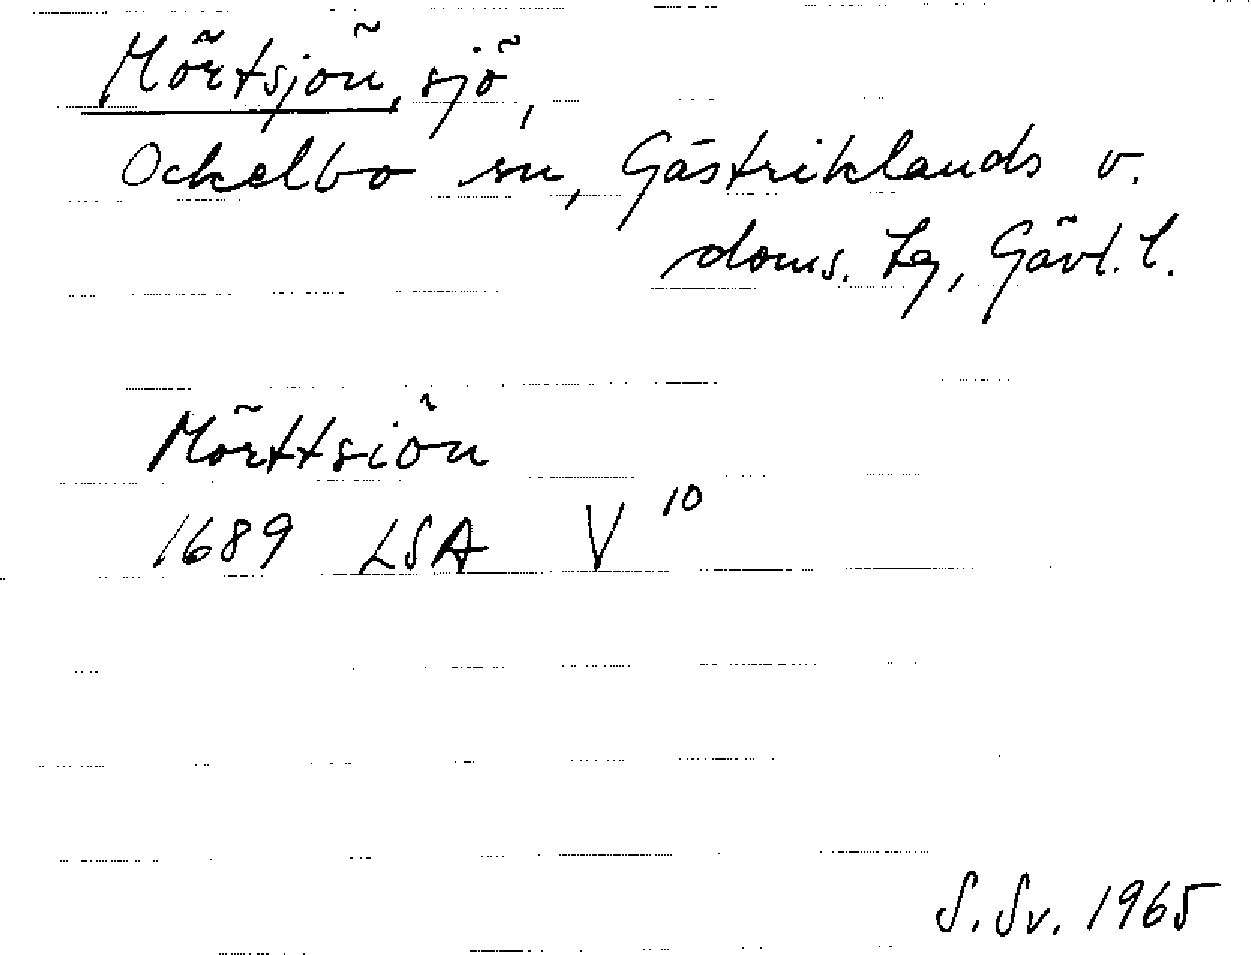 Mörtsjön, sjö,
Ockelbo sn, Gästriklands v.
doms. tg, Gävl. l.
Mörttsiön
1689 LSA V 10
S. Sv. 1965